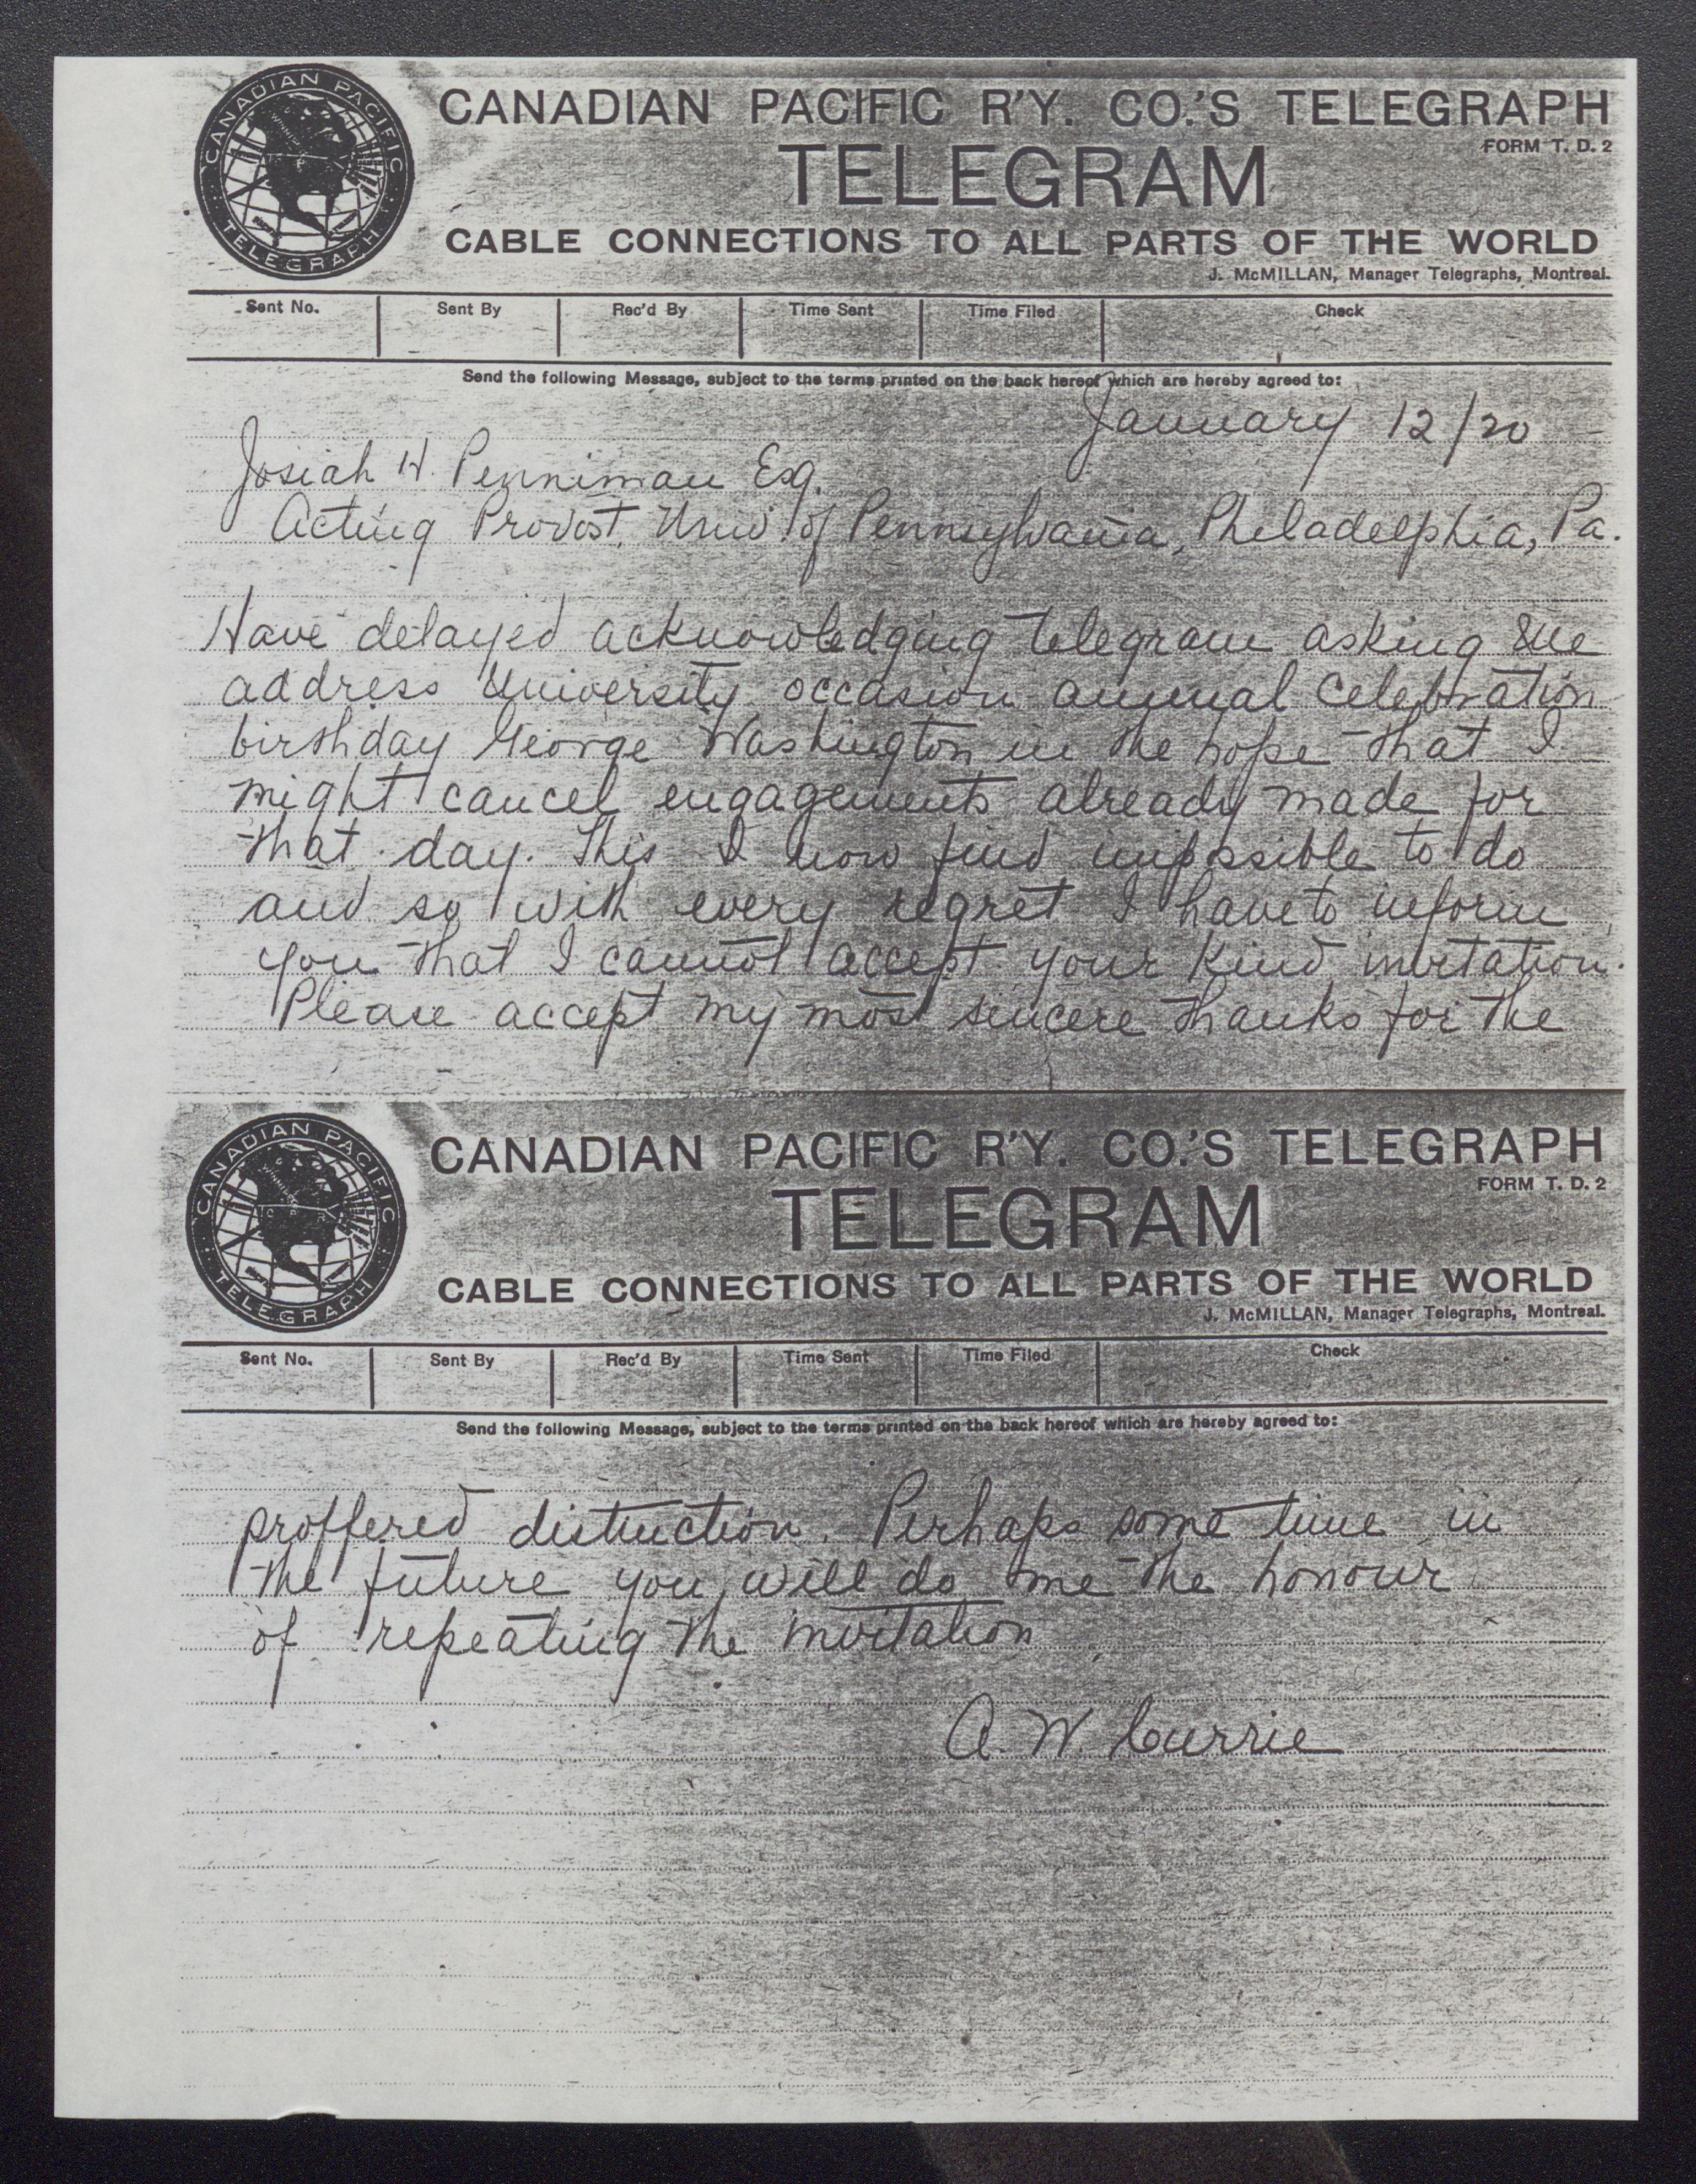 CANADIAN PACIFIC
TELEGRAPH
CANADIAN PACIFIC R'Y. CO.'S TELEGRAPH
FORM T. D. 2
TELEGRAM
CABLE CONNECTIONS TO ALL PARTS OF THE WORLD
J. McMILLAN, Manager Telegraphs, Montreal.
Sent No. Sent By Rec'd By Time Sent Time Filed Check
Send the following Message, subject to the terms printed on the back hereof which are hereby agreed to:
January 12/20
Josiah H. Penniman Esq.
Acting Provost, Univ. of Pennsylvania, Philadelphia, Pa.
Have delayed acknowledging telegram asking me
address University occasion annual celebration
birthday George Washington in the hope that I
might cancel engagements already made for
that day. This I now find impossible to do
and so with every regret I have to inform
you that I cannot accept your kind invitation.
Please accept my most sincere thanks for the
CANADIAN PACIFIC
TELEGRAPH
CANADIAN PACIFIC R'Y. CO.'S TELEGRAPH
FORM T. D. 2
TELEGRAM
CABLE CONNECTIONS TO ALL PARTS OF THE WORLD
J. McMILLAN, Manager Telegraphs, Montreal.
Sent No. Sent By Rec'd By Time Sent Time Filed Check
Send the following Message, subject to the terms printed on the back hereof which are hereby agreed to:
proffered distinction. Perhaps some time in
the future you will do me the honour
of repeating the invitation
A. W. Currie